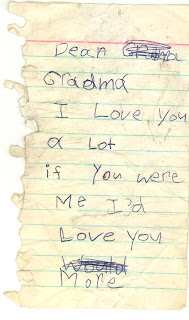 Dear
Gradma
I Love you
a Lot
if you were
Me I'd
Love you
More